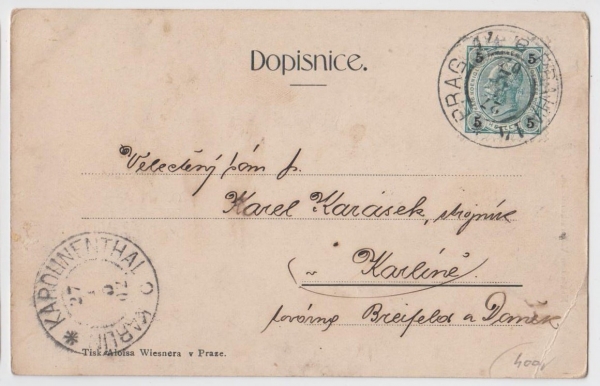 Dopisnice.
5 5
5 5
PRAG
PRAHA
Veléctěný pán p.
Karel Karásek, strojník
v Karlíně.
továrna Breitfeld a Daněk
KAROLINENTHAL
KARLÍN
27
02
Tisk Aloisa Wiesnera v Praze.